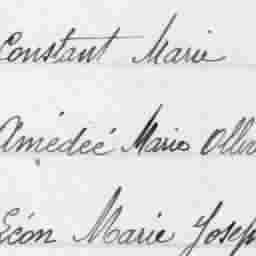 Constant Marie
Amédeé Marie
Léon Marie Joseph